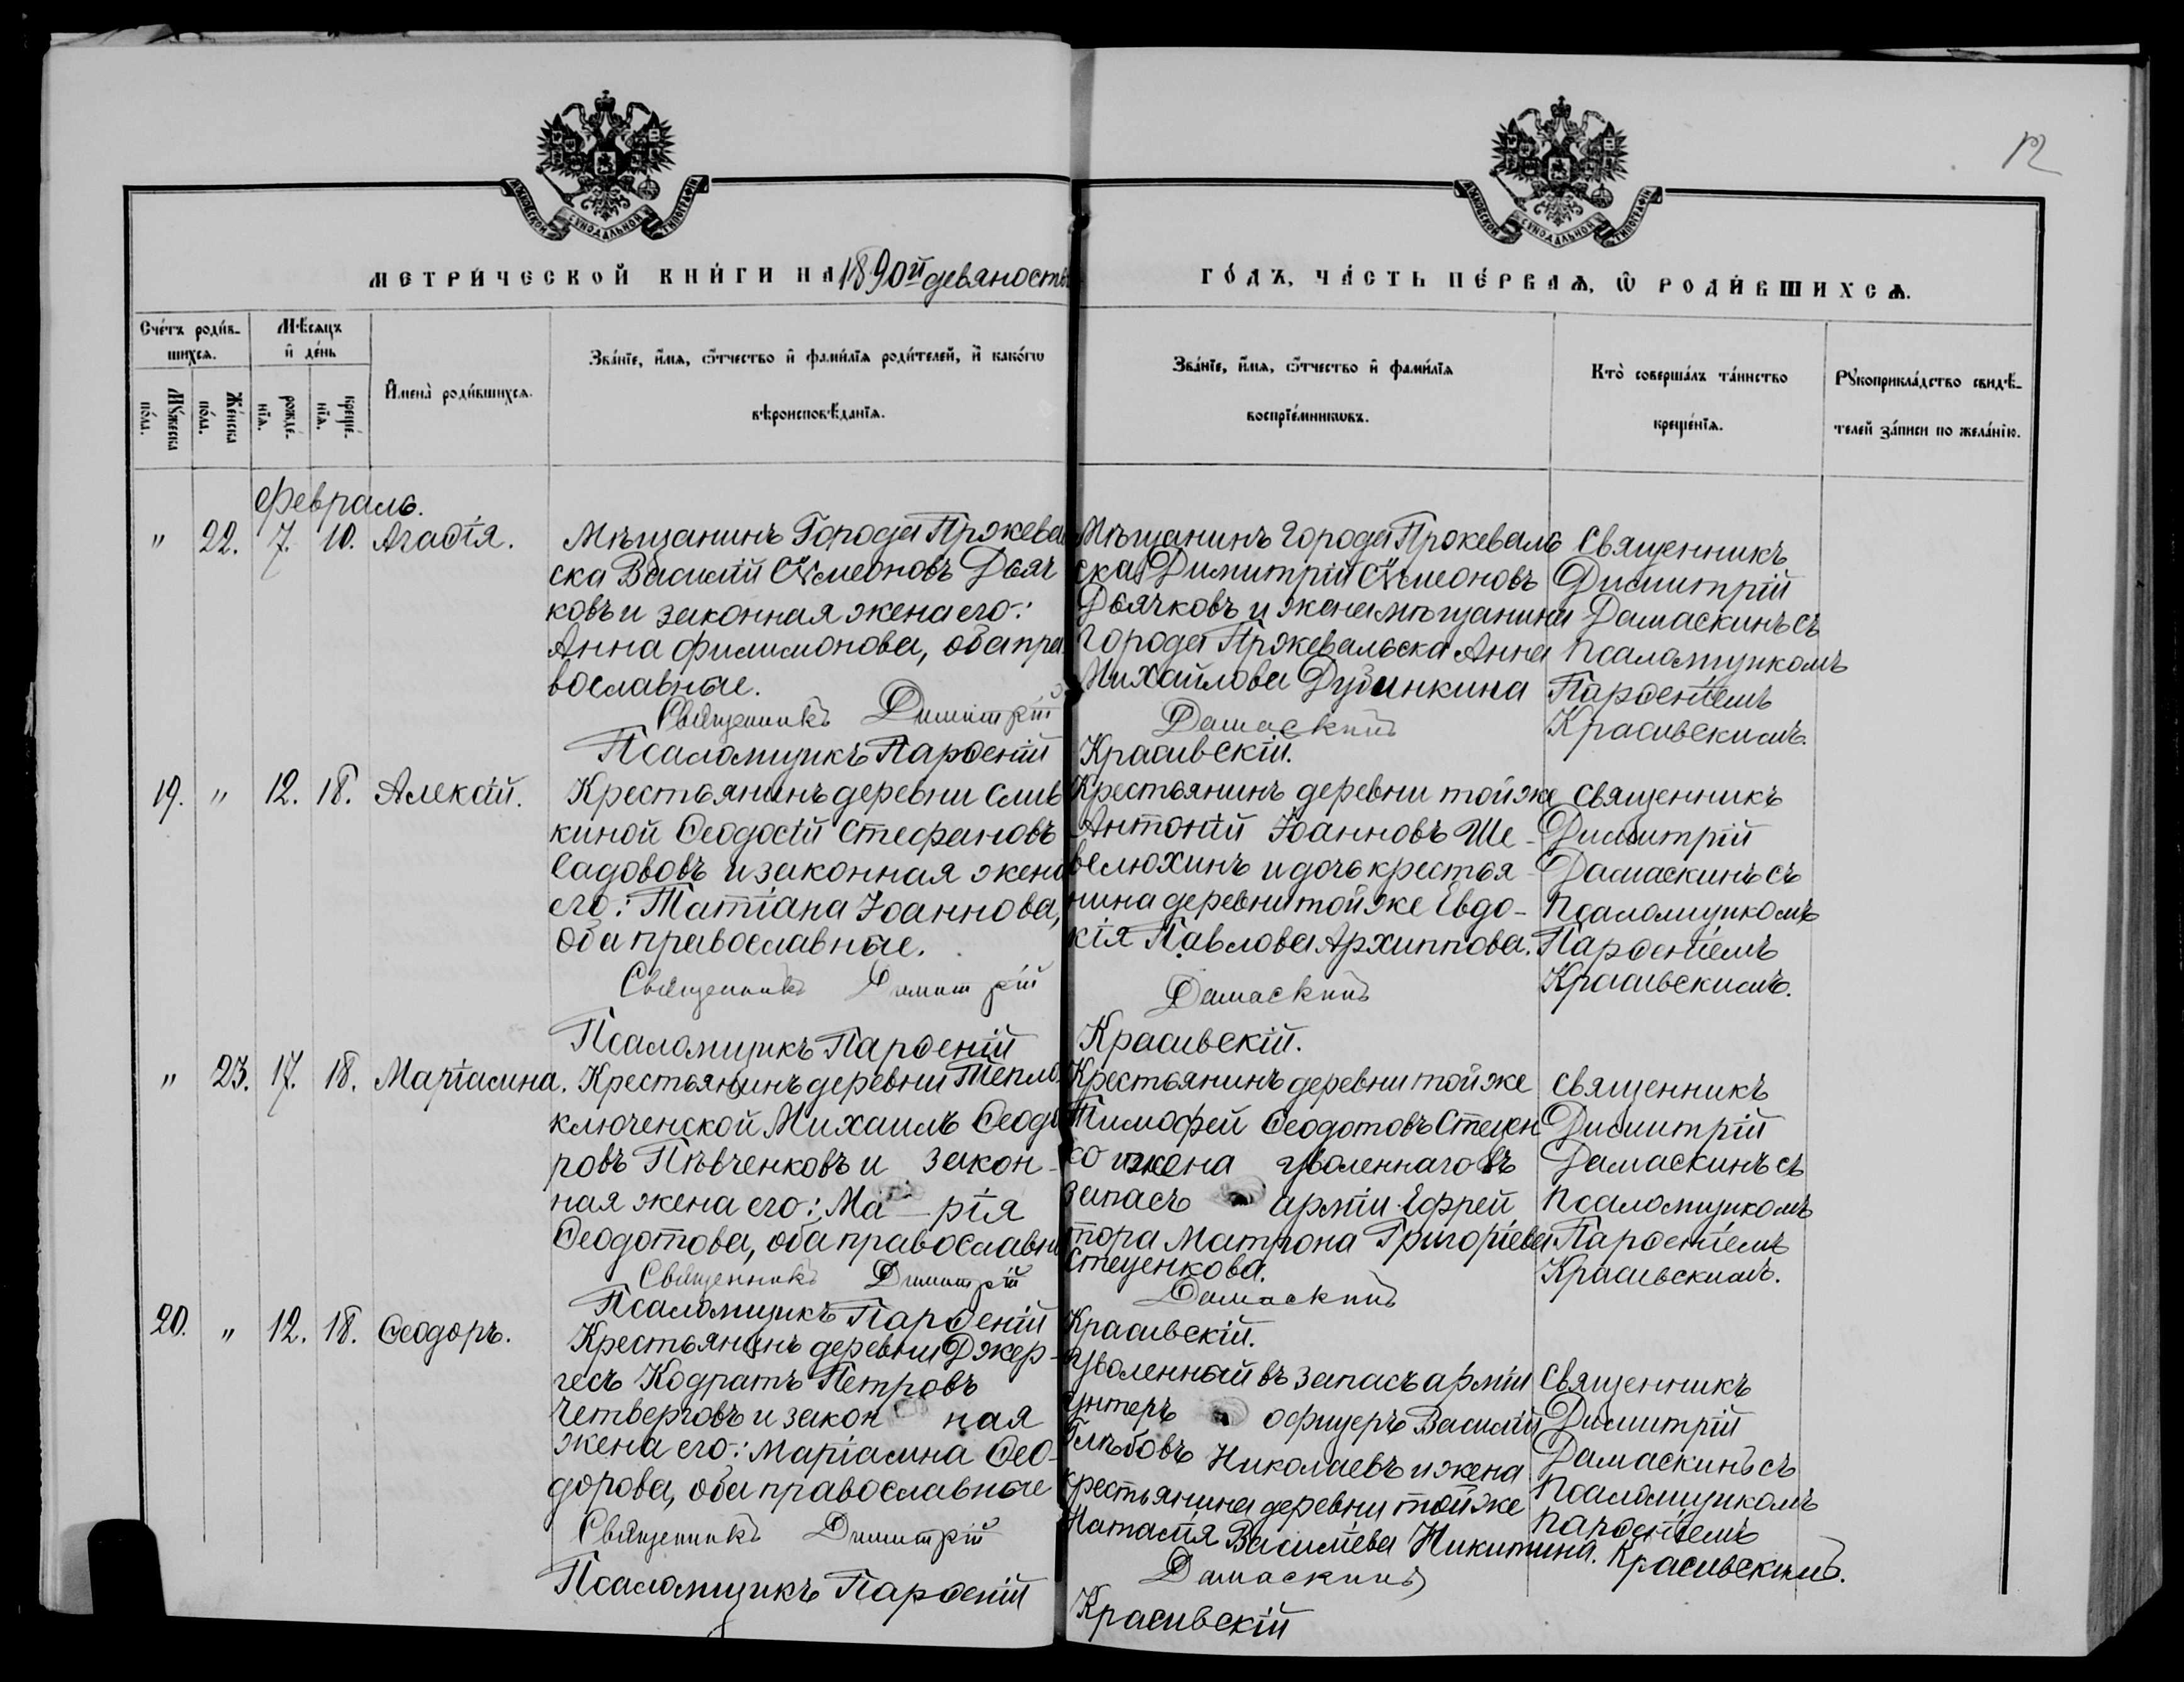 12
МОСКОВСКОЙ СѴНОДАЛЬНОЙ ТИПОГРАФІИ
МОСКОВСКОЙ СѴНОДАЛЬНОЙ ТИПОГРАФІИ
МЕТРИ́ЧЕСКОЙ КНИ́ГИ НА 1890й девяносты
ГО́ДЪ, ЧА́СТЬ ПЕ́РВАѦ, Ѡ РОДИ́ВШИХСѦ.
Сче́тъ роди́в-
шихсѧ.
Мꙋ́жеска по́ла.
Же́нска по́ла.
Мѣ́сѧцъ
и҆ де́нь
рожде́-
нїѧ.
креще́-
нїѧ.
И҆мена̀ роди́вшихсѧ.
Зва́нїе, и҆́мѧ, ѻ҆́тчество и҆ фами́лїѧ роди́телей, и҆ како́гѡ
вѣроисповѣ́данїѧ.
Зва́нїе, и҆́мѧ, ѻ҆́тчество и҆ фами́лїѧ
воспрїе́мникѡвъ.
Кто̀ соверша́лъ та́инство
креще́нїѧ.
Рꙋкоприкла́дство свидѣ́-
телей за́писи по жела́нїю.
Февраль.
" 22. 7. 10. Агафія.
Мѣщанинъ Города Пржева
ска Василій Сѵмеоновъ Дьяч
ковъ и законная жена его:
Анна Филимонова, оба пра
вославные.
Священникъ Димитрій
Псаломщикъ Парѳеній
Мѣщанинъ города Пржеваль
ска Димитрій Сѵмеоновъ
Дьячковъ и жена мѣщанина
города Пржевальска Анна
Михайлова Дубинкина
Дамаскинъ
Красивскій.
Священникъ
Димитрій
Дамаскинъ съ
псаломщикомъ
Парѳеніемъ
Красивскимъ.
19. " 12. 18. Алексій.
Крестьянинъ деревни Слив
киной Ѳеодосій Стефановъ
Садововъ и законная жена
его: Татіана Іоаннова,
оба православные.
Священникъ Димитрій
Псаломщикъ Парѳеній
Крестьянинъ деревни той же
Антоній Іоанновъ Ше-
велюхинъ и дочь крестья-
нина деревни той же Евдо-
кія Павлова Архиппова.
Дамаскинъ
Красивскій.
Священникъ
Димитрій
Дамаскинъ съ
псаломщикомъ
Парѳеніемъ
Красивскимъ.
" 23. 17. 18. Маріамна.
Крестьянинъ деревни Тепло
ключенской Михаилъ Ѳеодо
ровъ Пѣвченковъ и закон-
ная жена его: Ма-рія
Ѳеодотова, оба православны
Священникъ Димитрій
Псаломщикъ Парѳеній
Крестьянинъ деревни той же
Тимофей Ѳеодотовъ Стецен
ко и жена уволеннаго въ
запасъ арміи Ефрей
тора Матрона Григоріева
Стеценкова.
Дамаскинъ
Красивскій.
Священникъ
Димитрій
Дамаскинъ съ
псаломщикомъ
Парѳеніемъ
Красивскимъ.
20. " 12. 18. Ѳеодоръ.
Крестьянинъ деревни Джер-
гесъ Кодратъ Петровъ
Четверговъ и закон ная
жена его: Маріамна Ѳео-
дорова, оба православные
Священникъ Димитрій
Псаломщикъ Парѳеній
Уволенный въ запасъ арміи
унтеръ офицеръ Василій
Глѣбовъ Николаевъ и жена
крестьянина деревни той же
Наталія Василіева Никитина.
Дамаскинъ
Красивскій
Священникъ
Димитрій
Дамаскинъ съ
псаломщикомъ
Парѳеніемъ
Красивскимъ.